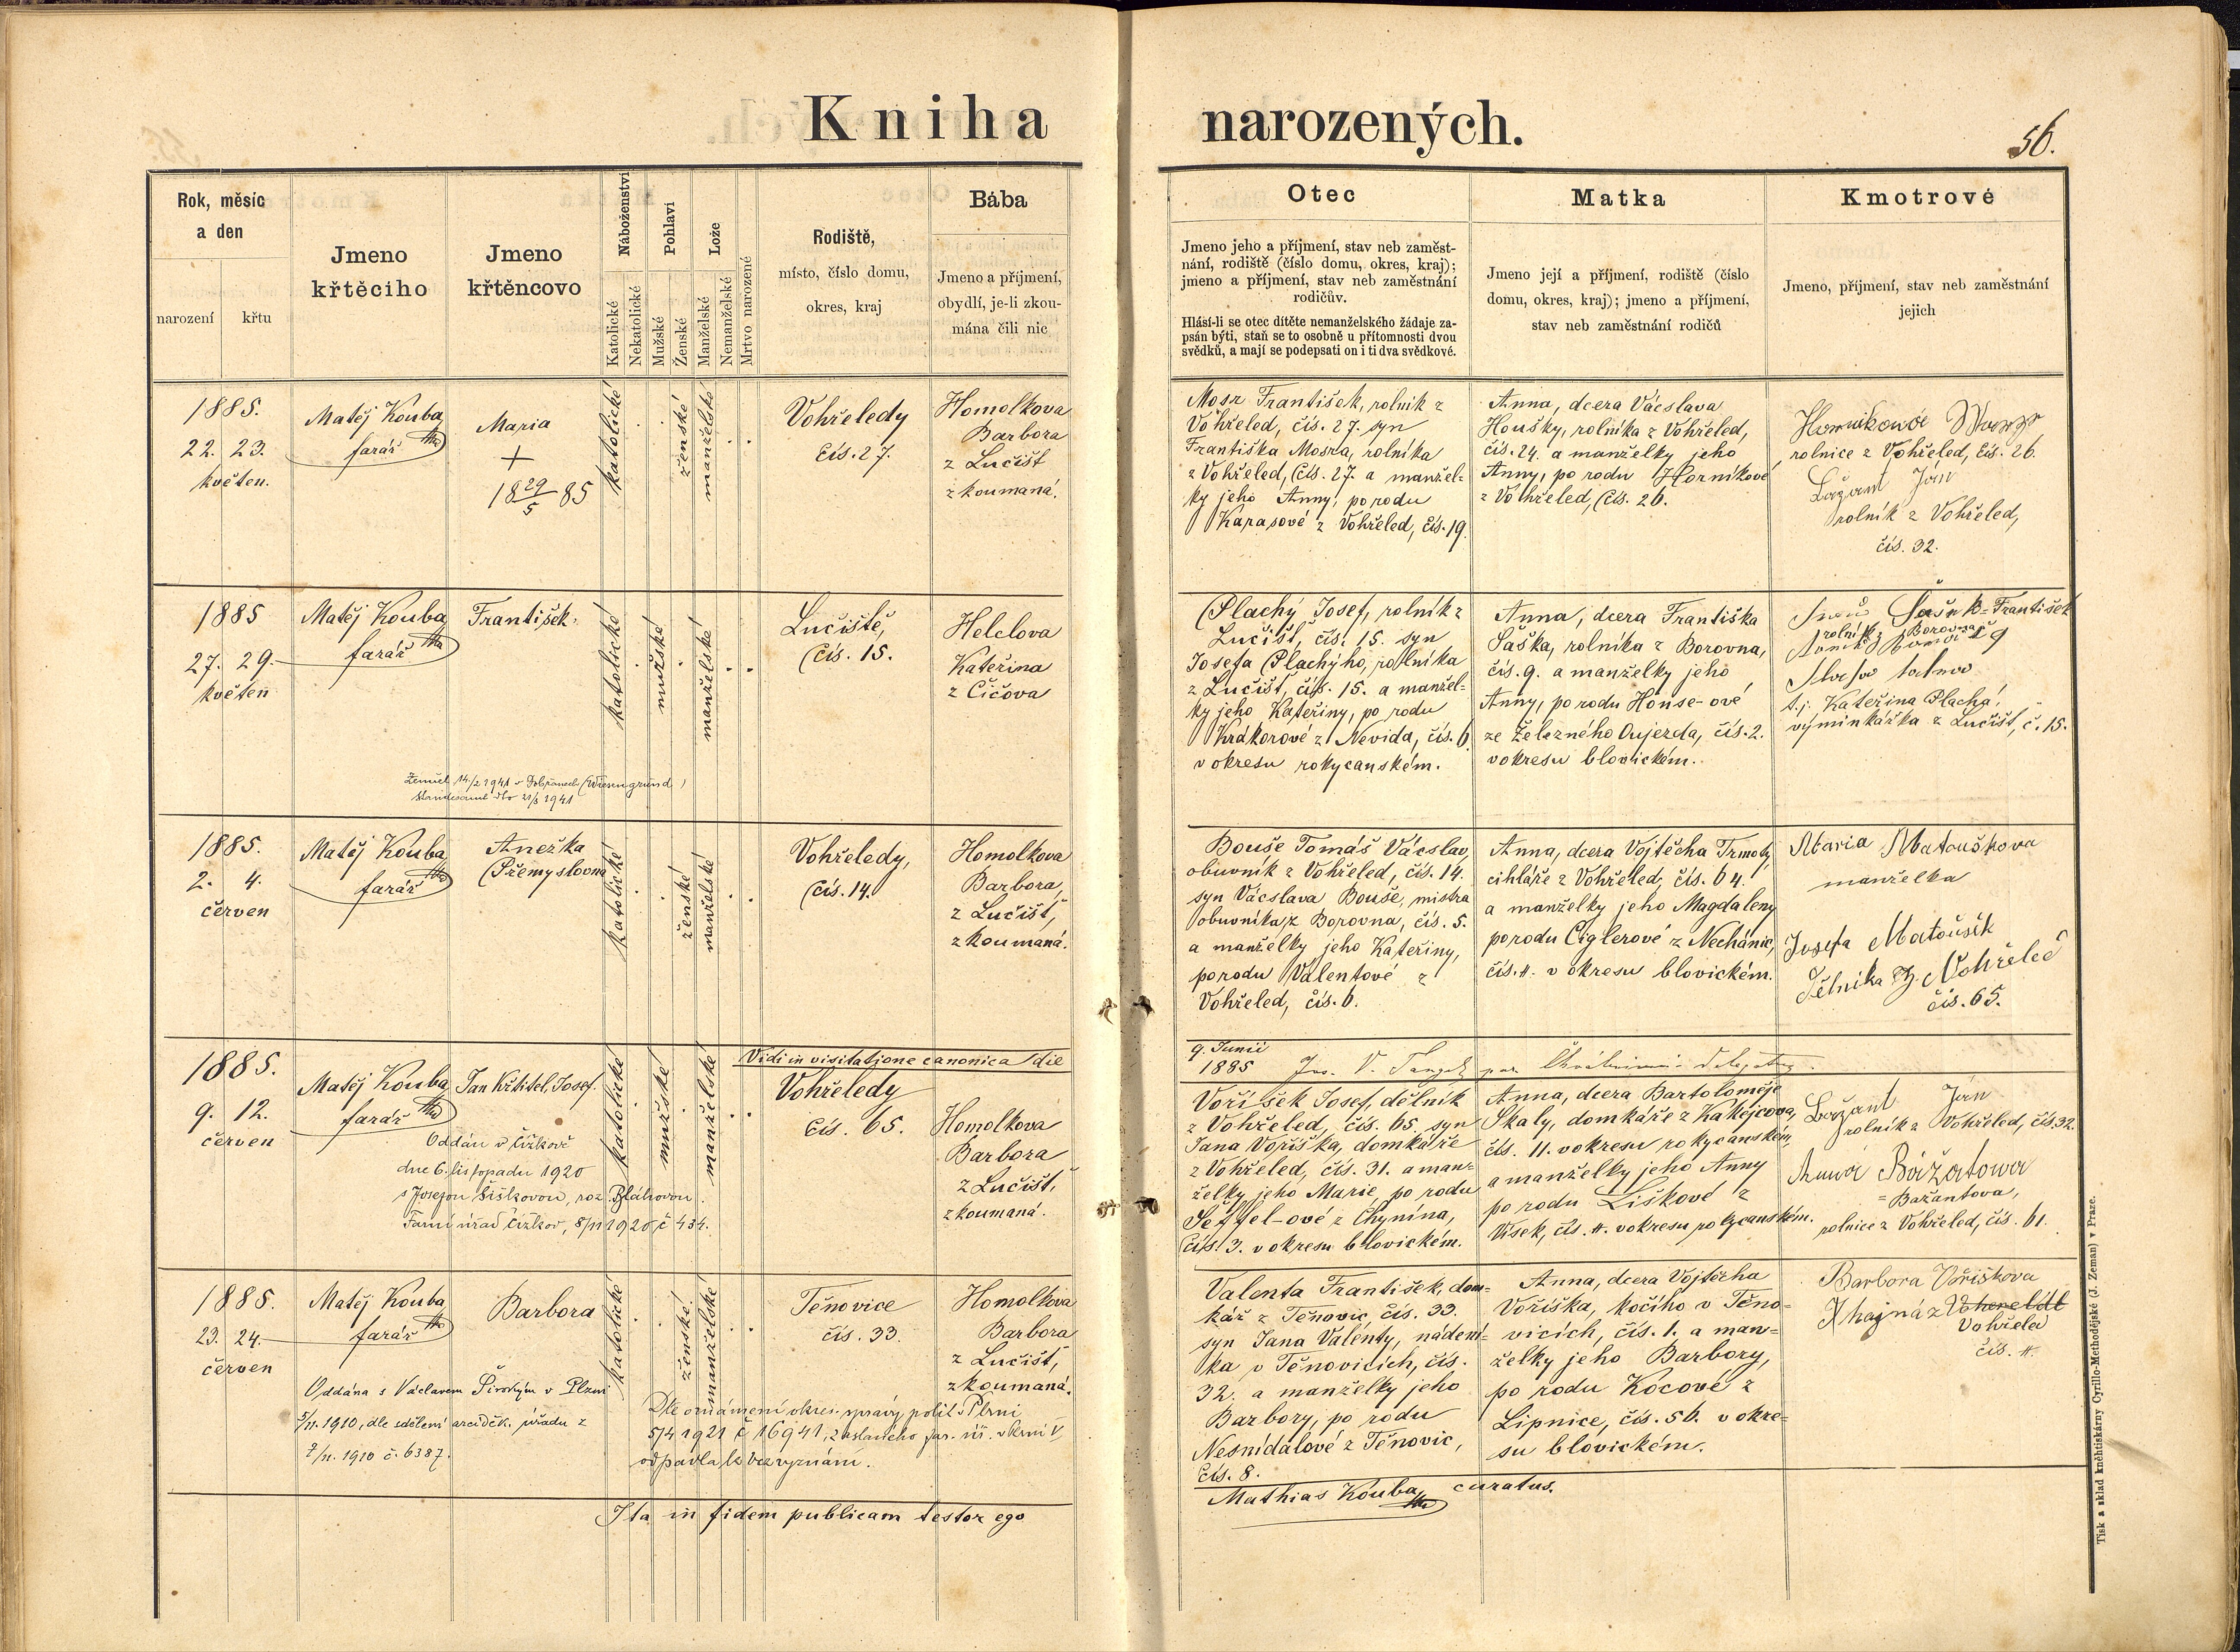 Kniha narozených.
56.
Rok, měsíc
a den
narození
křtu
Jmeno
křtěciho
Jmeno
křtěncovo
Náboženství
Katolické
Nekatolické
Pohlaví
Mužské
Ženské
Lože
Manželské
Nemanželské
Mrtvo narozené
Rodiště,
místo, číslo domu,
okres, kraj
Bába
Jmeno a příjmení,
obydlí, je-li zkou-
mána čili nic
Otec
Jmeno jeho a příjmení, stav neb zaměst-
nání, rodiště (číslo domu, okres, kraj);
jmeno a příjmení, stav neb zaměstnání
rodičův.
Hlásí-li se otec dítěte nemanželského žádaje za-
psán býti, staň se to osobně u přítomnosti dvou
svědků, a mají se podepsati on i ti dva svědkové.
Matka
Jmeno její a příjmení, rodiště (číslo
domu, okres, kraj); jmeno a příjmení,
stav neb zaměstnání rodičů
Kmotrové
Jmeno, příjmení, stav neb zaměstnání
jejich
1885.
22. 23.
květen.
Matěj Kouba
farář
Maria
+
18 29/5 85
katolické
ženské
manželské
Vohřeledy
čís. 27.
Homolkova
Barbora
z Lučišť
zkoumaná.
Mosr František, rolník z
Vohřeled, čís. 27. syn
Františka Mosra, rolníka
z Vohřeled, čís. 27. a manžel-
ky jeho Anny, po rodu
Karasové z Vohřeled, čís. 19.
Anna, dcera Václava
Houšky, rolníka z Vohřeled,
čís. 24. a manželky jeho
Anny, po rodu Horníkové
z Vohřeled, čís. 26.
rolnice z Vohřeled, čís. 26.
Bažant Ján
rolník z Vohřeled,
čís. 32.
1885
27. 29.
květen
Matěj Kouba
farář
František.
katolické
mužské
manželské
Lučiště,
čís. 15.
Helclova
Kateřina
z Čičova
Plachý Josef, rolník z
Lučišť, čís. 15. syn
Josefa Plachýho, rolníka
z Lučišť, čís. 15. a manžel-
ky jeho Kateřiny, po rodu
Krákorové z Nevida, čís. 6.
v okresu rokycanském.
Anna, dcera Františka
Šaška, rolníka z Borovna,
čís. 9. a manželky jeho
Anny, po rodu House-ové
ze Železného Oujezda, čís. 2.
v okresu blovickém.
František
rolník z Borovna
t.j. Kateřina Plachá,
výminkářka z Lučišť, č. 15.
Zemřel 14/2 1941 v Dobřanech (Wiesengrund)
Standesamt dto 21/3 1941
1885.
2. 4.
červen
Matěj Kouba
farář
Anežka
Přemyslovna
katolické
ženské
manželské
Vohřeledy,
čís. 14.
Homolkova
Barbora,
z Lučišť,
zkoumaná.
Bouše Tomáš Václav,
obuvník z Vohřeled, čís. 14.
syn Václava Bouše, mistra
obuvníka z Borovna, čís. 5.
a manželky jeho Kateřiny,
po rodu Valentové z
Vohřeled, čís. 6.
Anna, dcera Vojtěcha Trmoty,
cihláře z Vohřeled, čís. 64.
a manželky jeho Magdaleny
po rodu Ciglerové z Nechánic,
čís. 4. v okresu blovickém.
Maria Matouškova
manželka
Josefa Matoušík
Dělníka z Vohřeled
čís. 65.
Vidi in visitatione canonica die
9. Junii
1885
1885.
9. 12.
červen
Matěj Kouba
farář
Jan Křtitel, Josef.
katolické
mužské
manželské
Vohřeledy
čís. 65.
Homolkova
Barbora
z Lučišť,
zkoumaná.
Voříšek Josef, dělník
z Vohřeled, čís. 65. syn
Jana Voříška, domkáře
z Vohřeled, čís. 31. a man-
želky jeho Marie, po rodu
Šeffel-ové z Chynína,
čís. 3. v okresu blovickém.
Anna, dcera Bartoloměje
Skaly, domkáře z Kakejcova,
čís. 11. v okresu rokycanském,
a manželky jeho Anny
po rodu Liškové z
Vísek, čís. 4. v okresu rokycanském.
Bažant Ján
rolník z Vohřeled, čís. 32.
Anna Bážatowa
= Bažantova,
rolnice z Vohřeled, čís. 61.
Oddán v Čížkově
dne 6. listopadu 1920
s Josefou Šiškovou, roz. Bláhovou.
Farní úřad Čížkov, 8/11 1920, č 434.
1885.
23. 24.
červen
Matěj Kouba
farář
Barbora
katolické
ženské
manželské
Těnovice
čís. 33.
Homolkova
Barbora
z Lučišť,
zkoumaná.
Valenta František, dom-
kář z Těnovic, čís. 33.
syn Jana Valenty, nádení-
ka v Těnovicích, čís.
32. a manželky jeho
Barbory, po rodu
Nesnídalové z Těnovic,
čís. 8.
Anna, dcera Vojtěcha
Voříška, kočího v Těno-
vicích, čís. 1. a man-
želky jeho Barbory,
po rodu Kocové z
Lipnice, čís. 56. v okre-
su blovickém.
Barbora Voříškova
Vohřeled
čís. 4.
Oddána s Václavem Širokým v Plzni
5/11. 1910, dle sdělení arciděk. úřadu z
7/11. 1910 č. 6387.
Dle oznámení okres. správy polit. v Plzni
5/4 1921 č 16941, zaslaného far. úř.
odpadla k bezvyznání.
Ita in fidem publicam testor ego
Mathias Kouba, curatus.
Tisk a sklad kněhtiskárny Cyrillo-Methodějské (J. Zeman) v Praze.